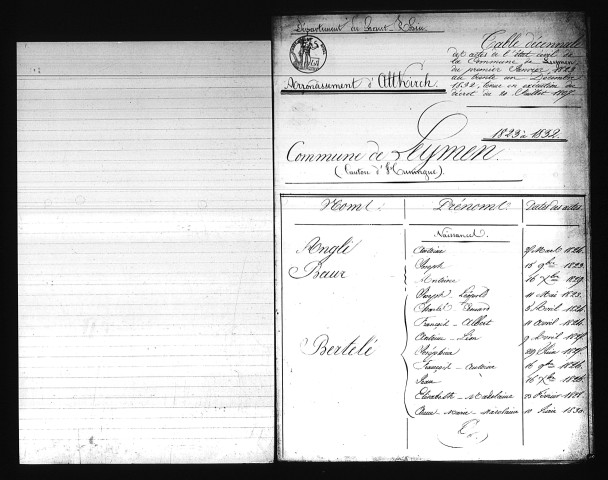 Département du Haut-Rhin.
Table décennale
des actes de l'état civil de
la Commune de Leymen
du premier Janvier 1823
au trente un Décembre
1832, tenue en exécution du
décret du 20 Juillet 1807.
Arrondissement d'Altkirch.
1823 à 1832.
Commune de Leymen.
(Canton d'Huningue)
Noms. Prénoms. Dates des actes.
Naissances.
Anglé Antoine Mars 1826.
Baur Joseph 15 9bre 1823.
Antoine 16 Xbre 1829.
Bertelé Joseph Léopold 11 Mai 1823.
Charles Edouard Avril 1824.
François-Albert 11 avril 1826.
Antoine-Léon 9 Avril
Joséphine 29 Juin
François-Antoine 16 9bre 1826.
Jean 16 Xbre 1828.
Elisabeth-Madelaine Février 1828.
Anne-Marie-Madelaine 10 Juin 1830.